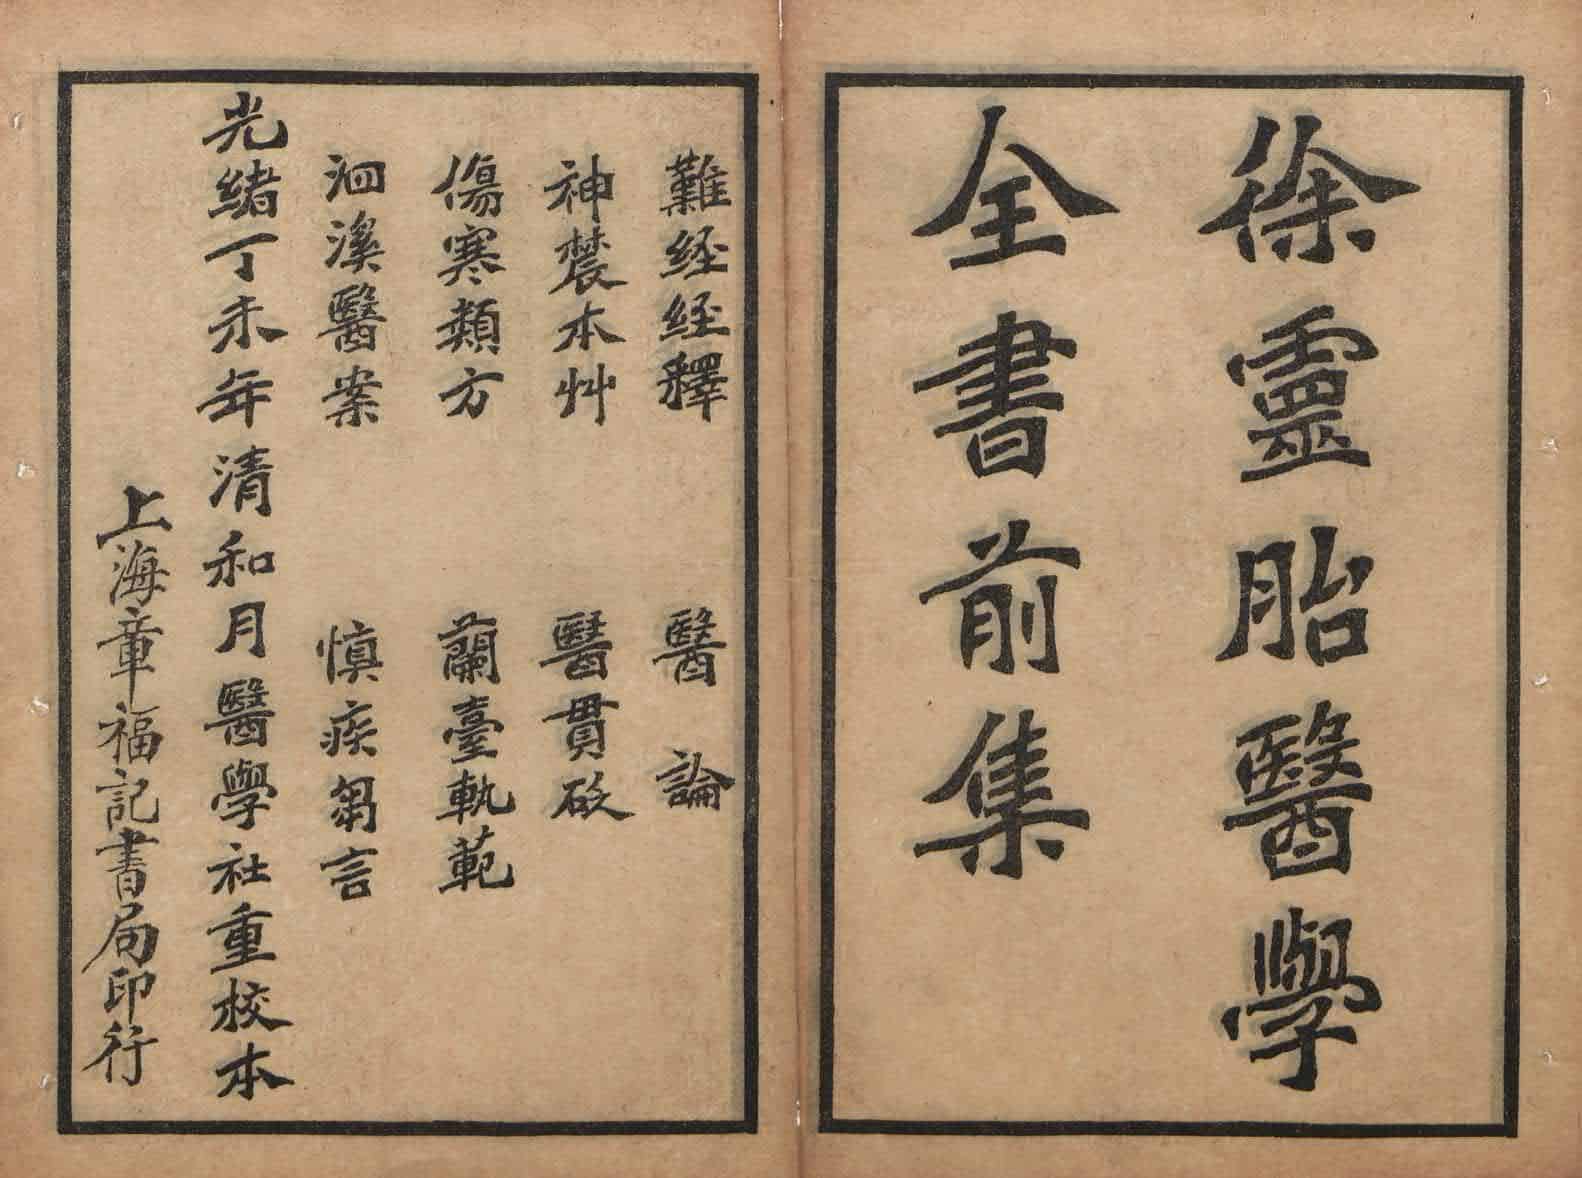 徐靈胎醫學
全書前集
難経経釋　醫論
神農本艸　醫貫砭
傷寒類方　蘭臺軌範
洄溪醫案　慎疾芻言
光緒丁未年清和月醫學社重校本
上海章福記書局印行